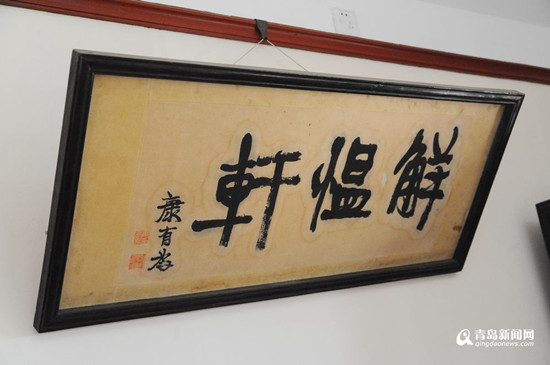 觧愠軒
康有為
青岛新闻网
qingdaonews.com